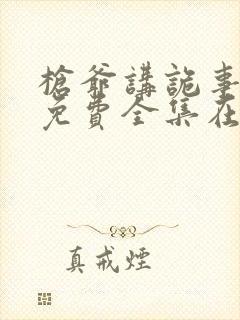 槍爺講詭事
免費全集在
真戒煙